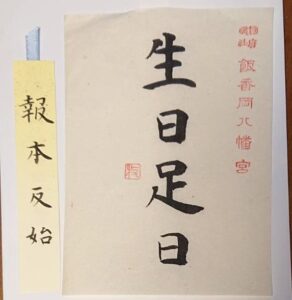 飯香岡八幡宮
生日足日
報本反始